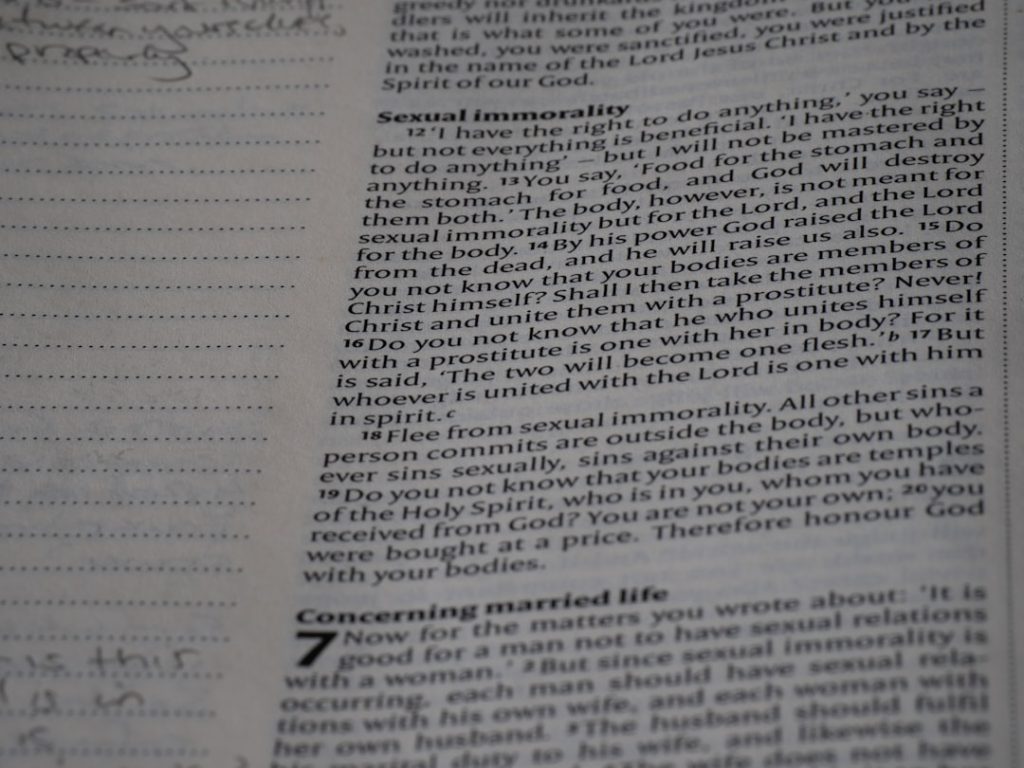 between yourselves
properly
greedy nor drunkards
dlers will inherit the kingdom
that is what some of you were. But you
washed, you were sanctified, you were justified
in the name of the Lord Jesus Christ and by the
Spirit of our God.
Sexual immorality
12 ‘I have the right to do anything,’ you say –
but not everything is beneficial. ‘I have the right
to do anything’ – but I will not be mastered by
anything. 13 You say, ‘Food for the stomach and
the stomach for food, and God will destroy
them both.’ The body, however, is not meant for
sexual immorality but for the Lord, and the Lord
for the body. 14 By his power God raised the Lord
from the dead, and he will raise us also. 15 Do
you not know that your bodies are members of
Christ himself? Shall I then take the members of
Christ and unite them with a prostitute? Never!
16 Do you not know that he who unites himself
with a prostitute is one with her in body? For it
is said, ‘The two will become one flesh.’b 17 But
whoever is united with the Lord is one with him
in spirit.c
18 Flee from sexual immorality. All other sins a
person commits are outside the body, but who-
ever sins sexually, sins against their own body.
19 Do you not know that your bodies are temples
of the Holy Spirit, who is in you, whom you have
received from God? You are not your own; 20 you
were bought at a price. Therefore honour God
with your bodies.
Concerning married life
7 Now for the matters you wrote about: ‘It is
good for a man not to have sexual relations
with a woman.’ 2 But since sexual immorality is
occurring, each man should have sexual rela-
tions with his own wife, and each woman with
her own husband. 3 The husband should fulfil
his marital duty to his wife, and likewise the
The wife does not have
is this
is in
is